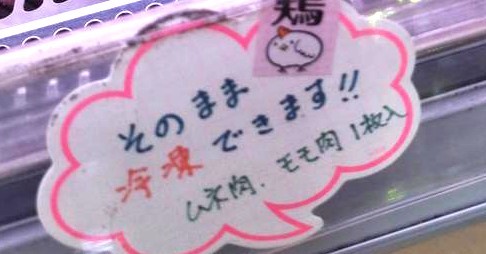 鶏
そのまま
冷凍できます!!
ムネ肉、モモ肉1枚入